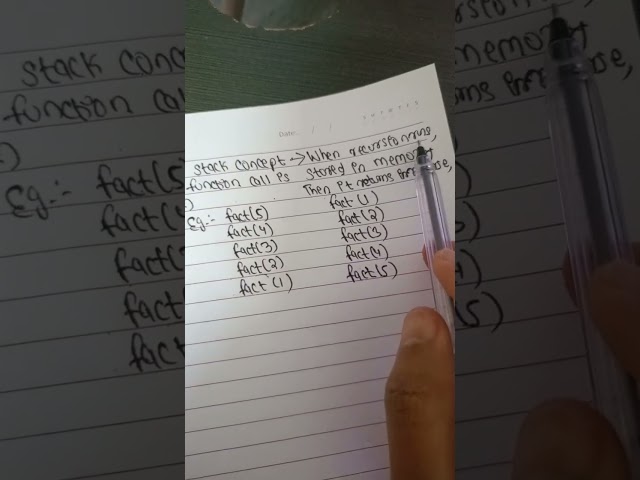 Date: / /
stack concept → When recursion runs,
function call is stored in memory
Then it returns in reverse,
Eg:- fact(5) fact(1)
fact(4) fact(2)
fact(3) fact(3)
fact(2) fact(4)
fact(1) fact(5)